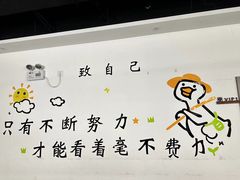 致自己
只有不断努力
才能看着毫不费力